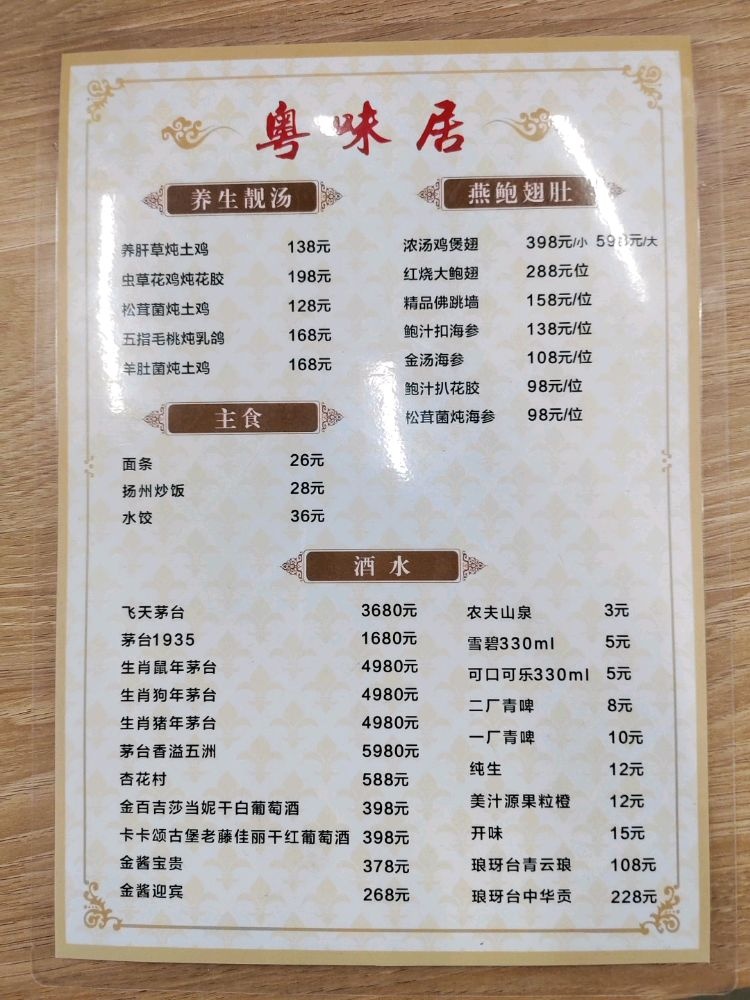 粤味居
养生靓汤
养肝草炖土鸡 138元
虫草花鸡炖花胶 198元
松茸菌炖土鸡 128元
五指毛桃炖乳鸽 168元
羊肚菌炖土鸡 168元
燕鲍翅肚
浓汤鸡煲翅 398元/小 598元/大
红烧大鲍翅 288元位
精品佛跳墙 158元/位
鲍汁扣海参 138元/位
金汤海参 108元/位
鲍汁扒花胶 98元/位
松茸菌炖海参 98元/位
主食
面条 26元
扬州炒饭 28元
水饺 36元
酒水
飞天茅台 3680元
茅台1935 1680元
生肖鼠年茅台 4980元
生肖狗年茅台 4980元
生肖猪年茅台 4980元
茅台香溢五洲 5980元
杏花村 588元
金百吉莎当妮干白葡萄酒 398元
卡卡颂古堡老藤佳丽干红葡萄酒 398元
金酱宝贵 378元
金酱迎宾 268元
农夫山泉 3元
雪碧330ml 5元
可口可乐330ml 5元
二厂青啤 8元
一厂青啤 10元
纯生 12元
美汁源果粒橙 12元
开味 15元
琅玡台青云琅 108元
琅玡台中华贡 228元